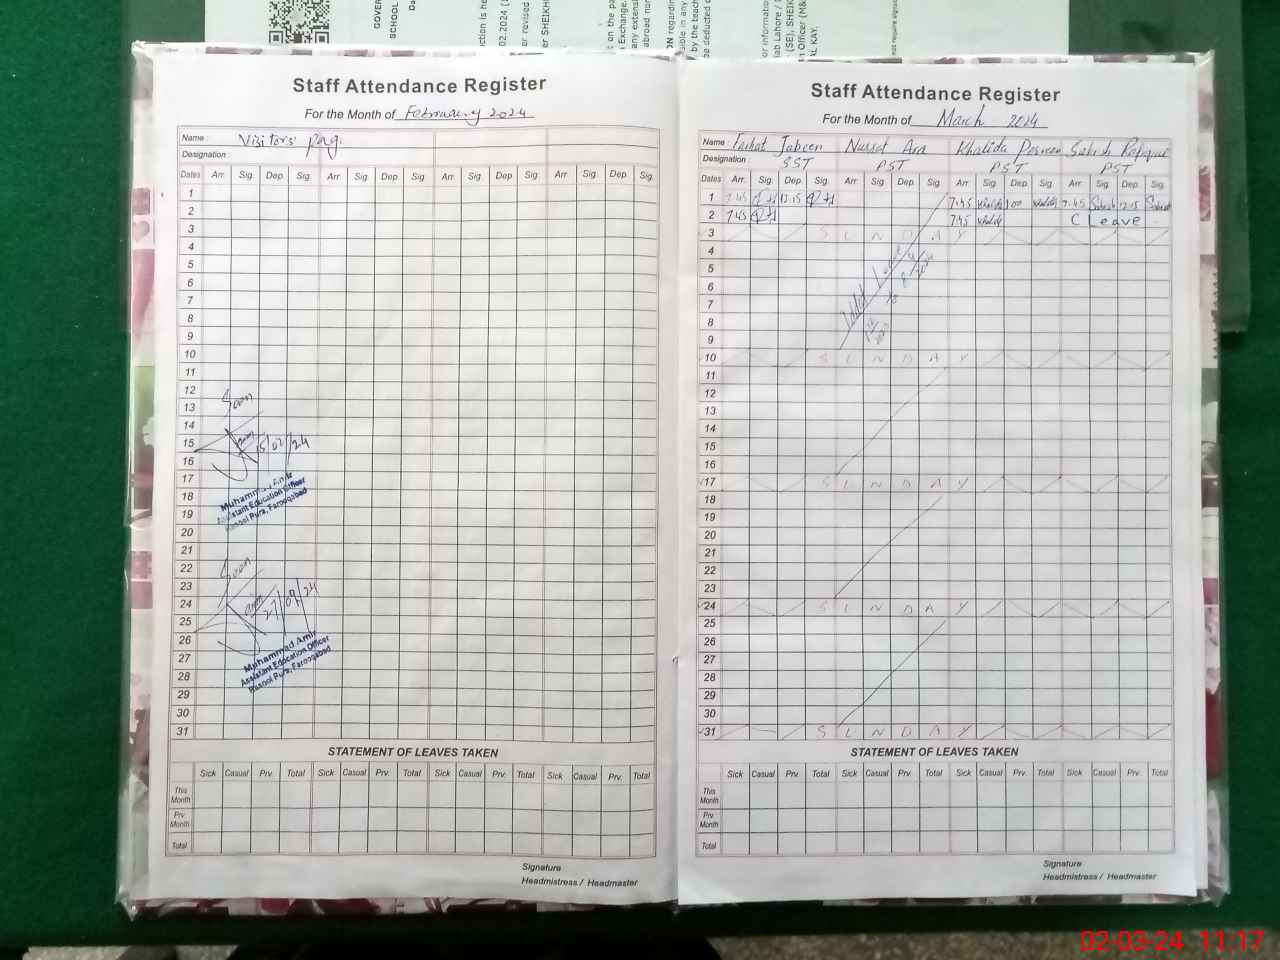 GOVER
SCHOOL
Staff Attendance Register
For the Month of February 2024
Name : Visitors' Pag.
Designation
Dates Arr. Sig. Dep. Sig. Arr. Sig. Dep. Sig. Arr. Sig. Dep. Sig. Arr. Sig. Dep. Sig.
1
2
3
4
5
6
7
8
9
10
11
12
13
14
15
16
17
18
19
20
21
22
23
24
25
26
27
28
29
30
31
Seen
15/02/24
Muhammad Amir
Assistant Education Officer
Rasool Pura, Farooqabad
Seen
Muhammad Amir
Assistant Education Officer
Rasool Pura, Farooqabad
STATEMENT OF LEAVES TAKEN
Sick Casual Prv. Total Sick Casual Prv. Total Sick Casual Prv. Total Sick Casual Prv. Total
This Month
Prv. Month
Total
Signature
Headmistress / Headmaster
Staff Attendance Register
For the Month of March 2024
Name : Farhat Jabeen Nusrat Ara Khalida Parveen Sabish Rafique
Designation SST PST PST PST
Dates Arr. Sig. Dep. Sig. Arr. Sig. Dep. Sig. Arr. Sig. Dep. Sig. Arr. Sig. Dep. Sig.
1 7.45 12.15 7.45 7.45 12.15
2 7.45 7.45 C Leave
3 SUNDAY
4
5
6
7
8
9
10 SUNDAY
11
12
13
14
15
16
17 SUNDAY
18
19
20
21
22
23
24 SUNDAY
25
26
27
28
29
30
31 SUNDAY
STATEMENT OF LEAVES TAKEN
Sick Casual Prv. Total Sick Casual Prv. Total Sick Casual Prv. Total Sick Casual Prv. Total
This Month
Prv. Month
Total
Signature
Headmistress / Headmaster
02-03-24 11:17